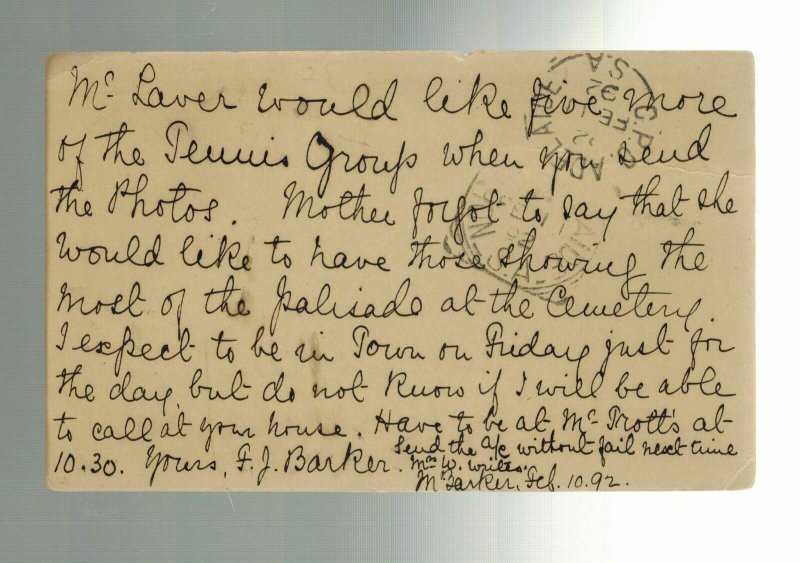 Mr Laver would like five more
of the Tennis Group when you send
the Photos. Mother forgot to say that she
would like to have those showing the
most of the palisade at the Cemetery.
I expect to be in Town on Friday just for
the day but do not know if I will be able
to call at your house. Have to be at Mr Trott's at
10.30. Yours, F. J. Barker.
Send the a/c without fail next time
Mrs W. writes.
Mt Barker, Feb. 10. 92.
G.P.O. ADELAIDE
FE 12
92
S.A